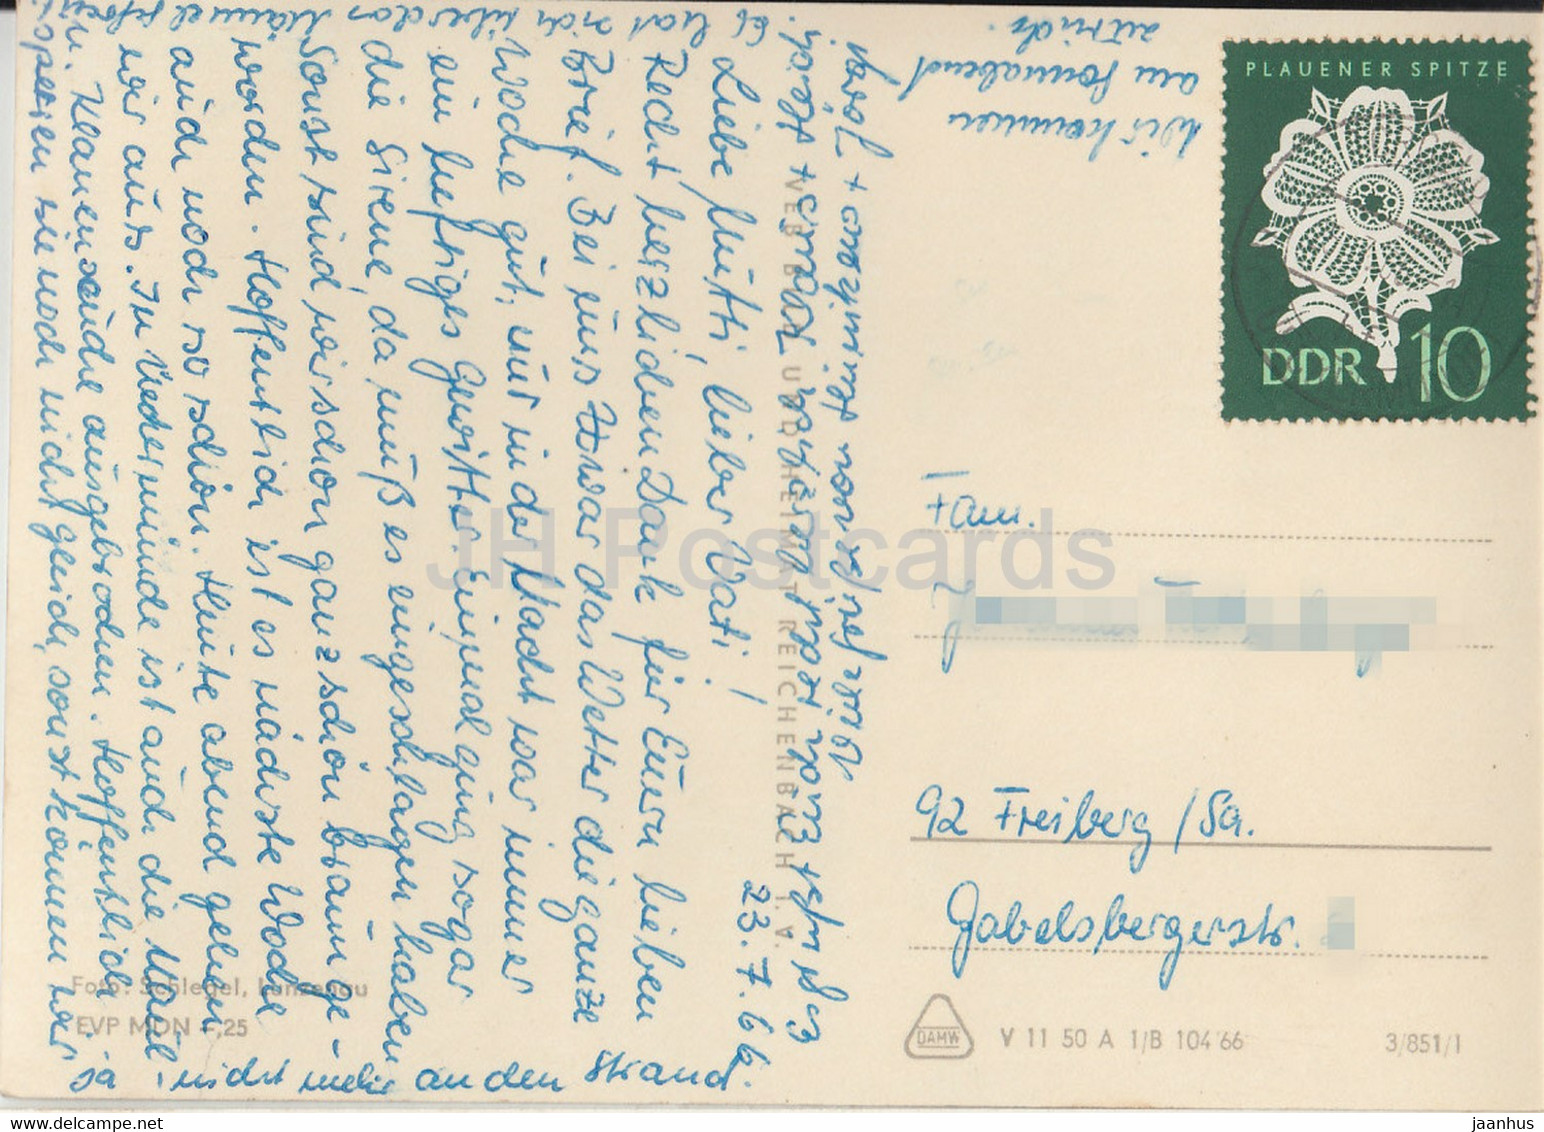 23.7.66
Liebe Mutti, lieber Vati!
Recht herzlichen Dank für Euern lieben
Brief. Bei uns zwar das Wetter die ganze
Woche gut, nur in der Nacht war immer
ein heftiges Gewitter. Einmal ging sogar
die Sirene, da muß es eingeschlagen haben
Sonst sind wir schon ganz schön braun ge-
worden. Hoffentlich ist es nächste Woche
auch noch so schön. Heute abend gehen
wir aus. In Ueckermünde ist auch die Maul
u. Klauenseuche ausgebrochen. Hoffentlich
sperren sie uns nicht gleich, sonst können wir
ja nicht mehr an den Strand.
Es hat sich über das
Es grüßt Euch recht herzlich
Wir kommen
am Sonnabend
zurück.
PLAUENER SPITZE
DDR 10
Fam.
92 Freiberg/Sa.
Gabelsbergerstr.
VEB BILD UND HEIMAT REICHENBACH I. V.
Foto: Schlegel, Lanzenau
EVP MDN -,25
DAMW
V 11 50 A 1/B 104 66
3/851/1
JH Postcards
jaanhus @ delcampe.net